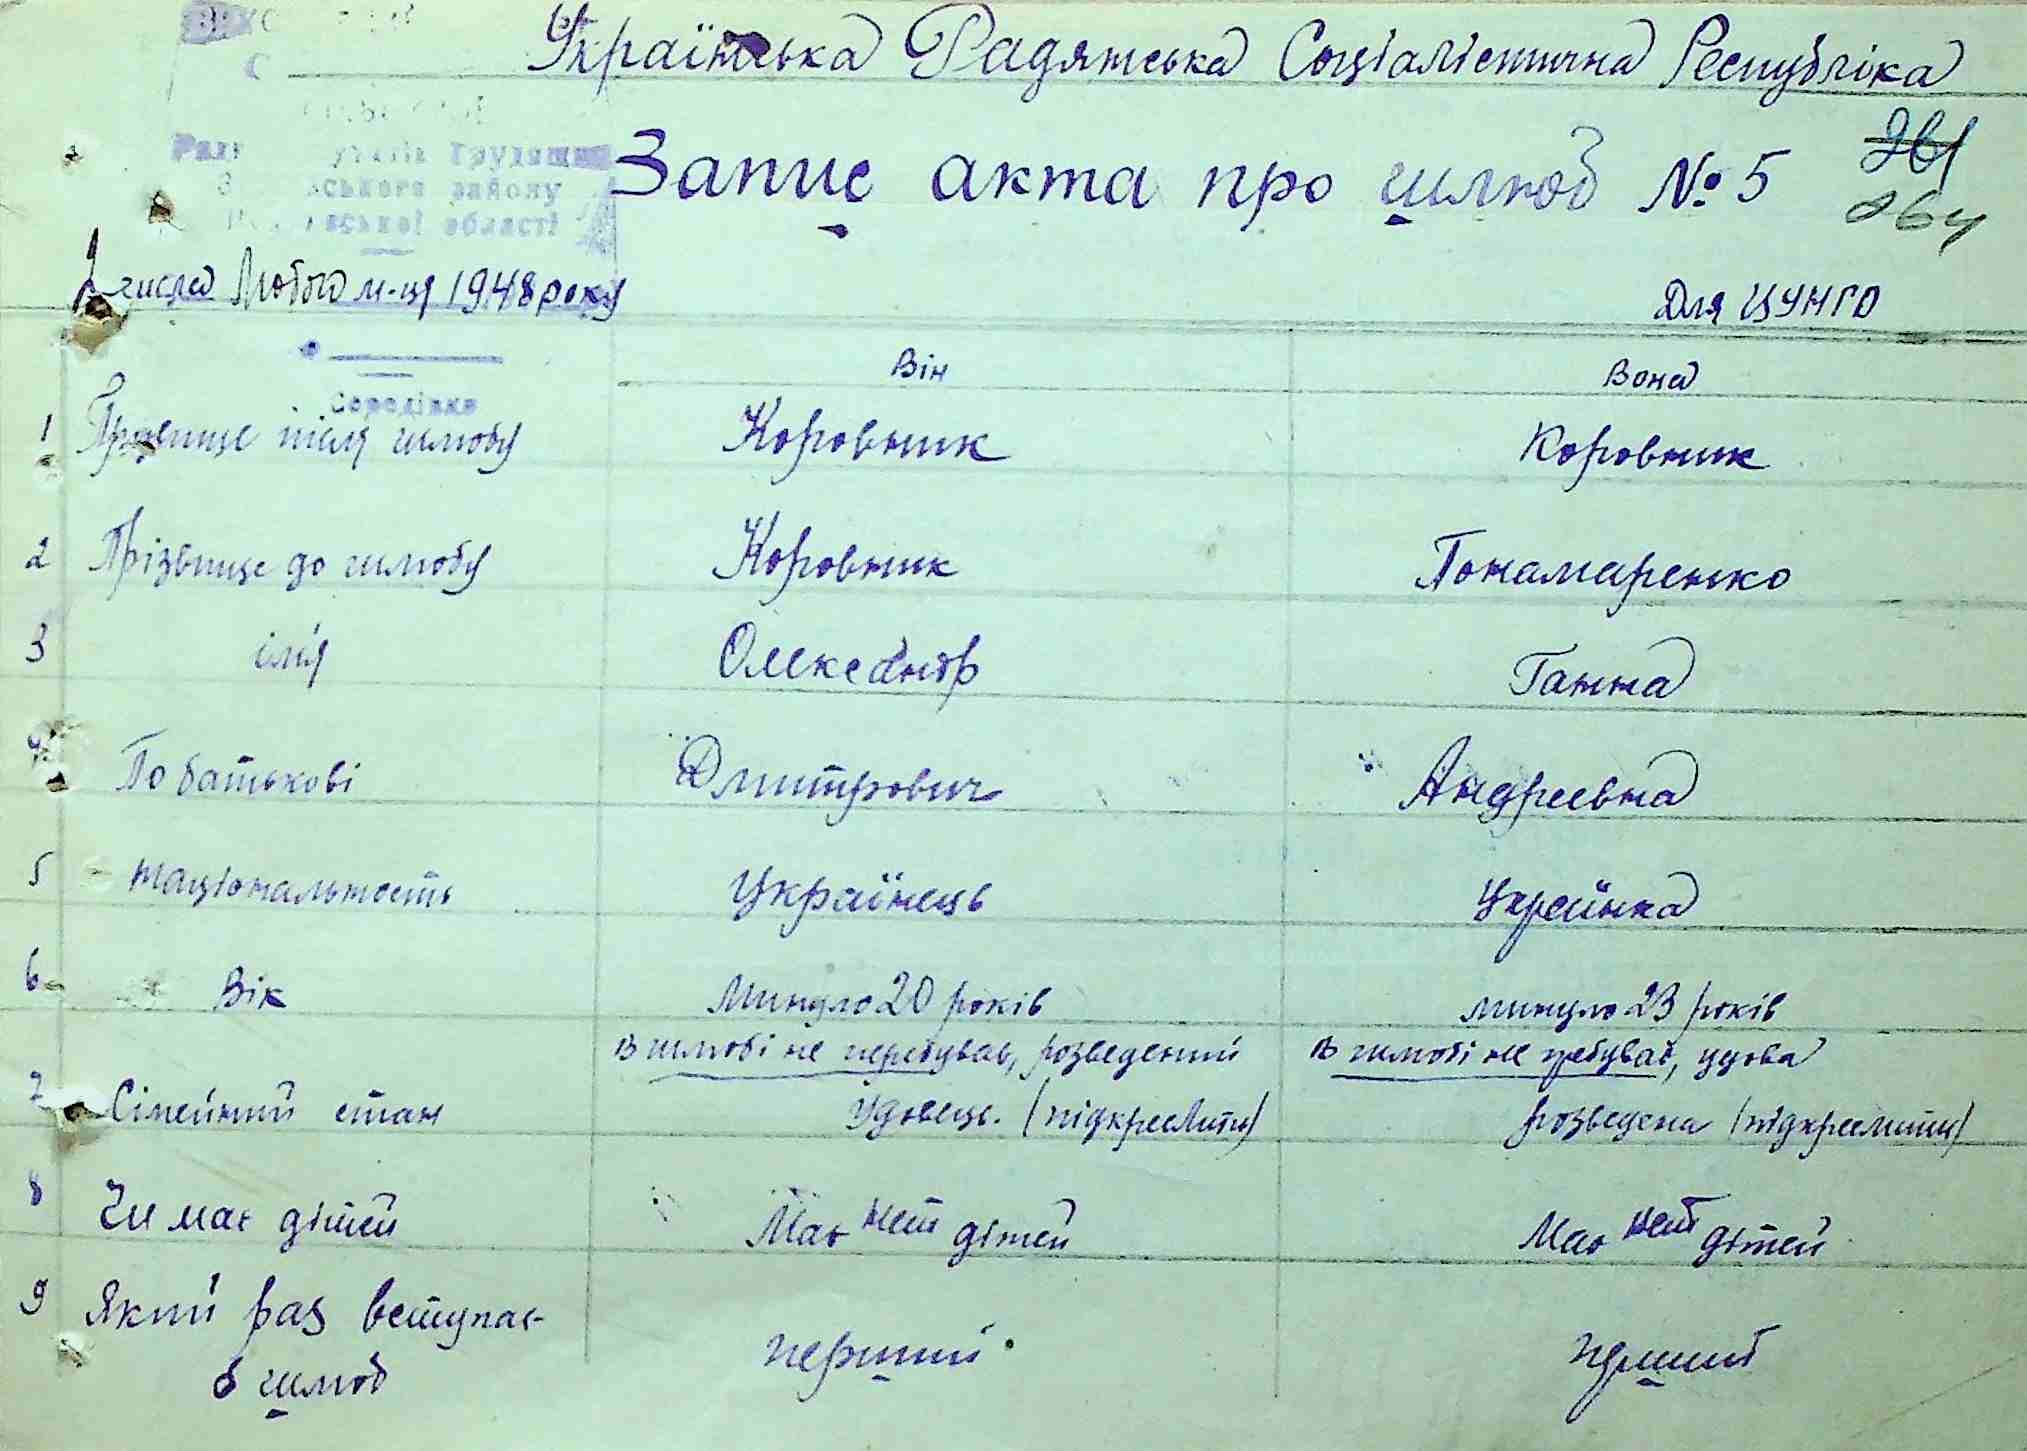 Українська Радянська Соціалістична Республіка
Запис акта про шлюб № 5
261
264
Трудящих
ського району
ської області
числа Лютого м-ця 1948 року
Для ЦУНГО
Він Вона
Середівка
1 Прізвище після шлюбу Коровник Коровник
2 Прізвище до шлюбу Коровник Понамаренко
3 ім'я Олександр Ганна
4 По батькові Дмитрович Андреевна
5 Національность Українець Українка
6 Вік Минуло 20 років минуло 23 років
В шлюбі не перебував, розведений В шлюбі не пребував, удова
7 Сімейний стан Удовець. (підкреслити) розведена (підкреслити)
8 Чи має дітей Має нет дітей Має нет дітей
9 Який раз вступає перший перший
в шлюб